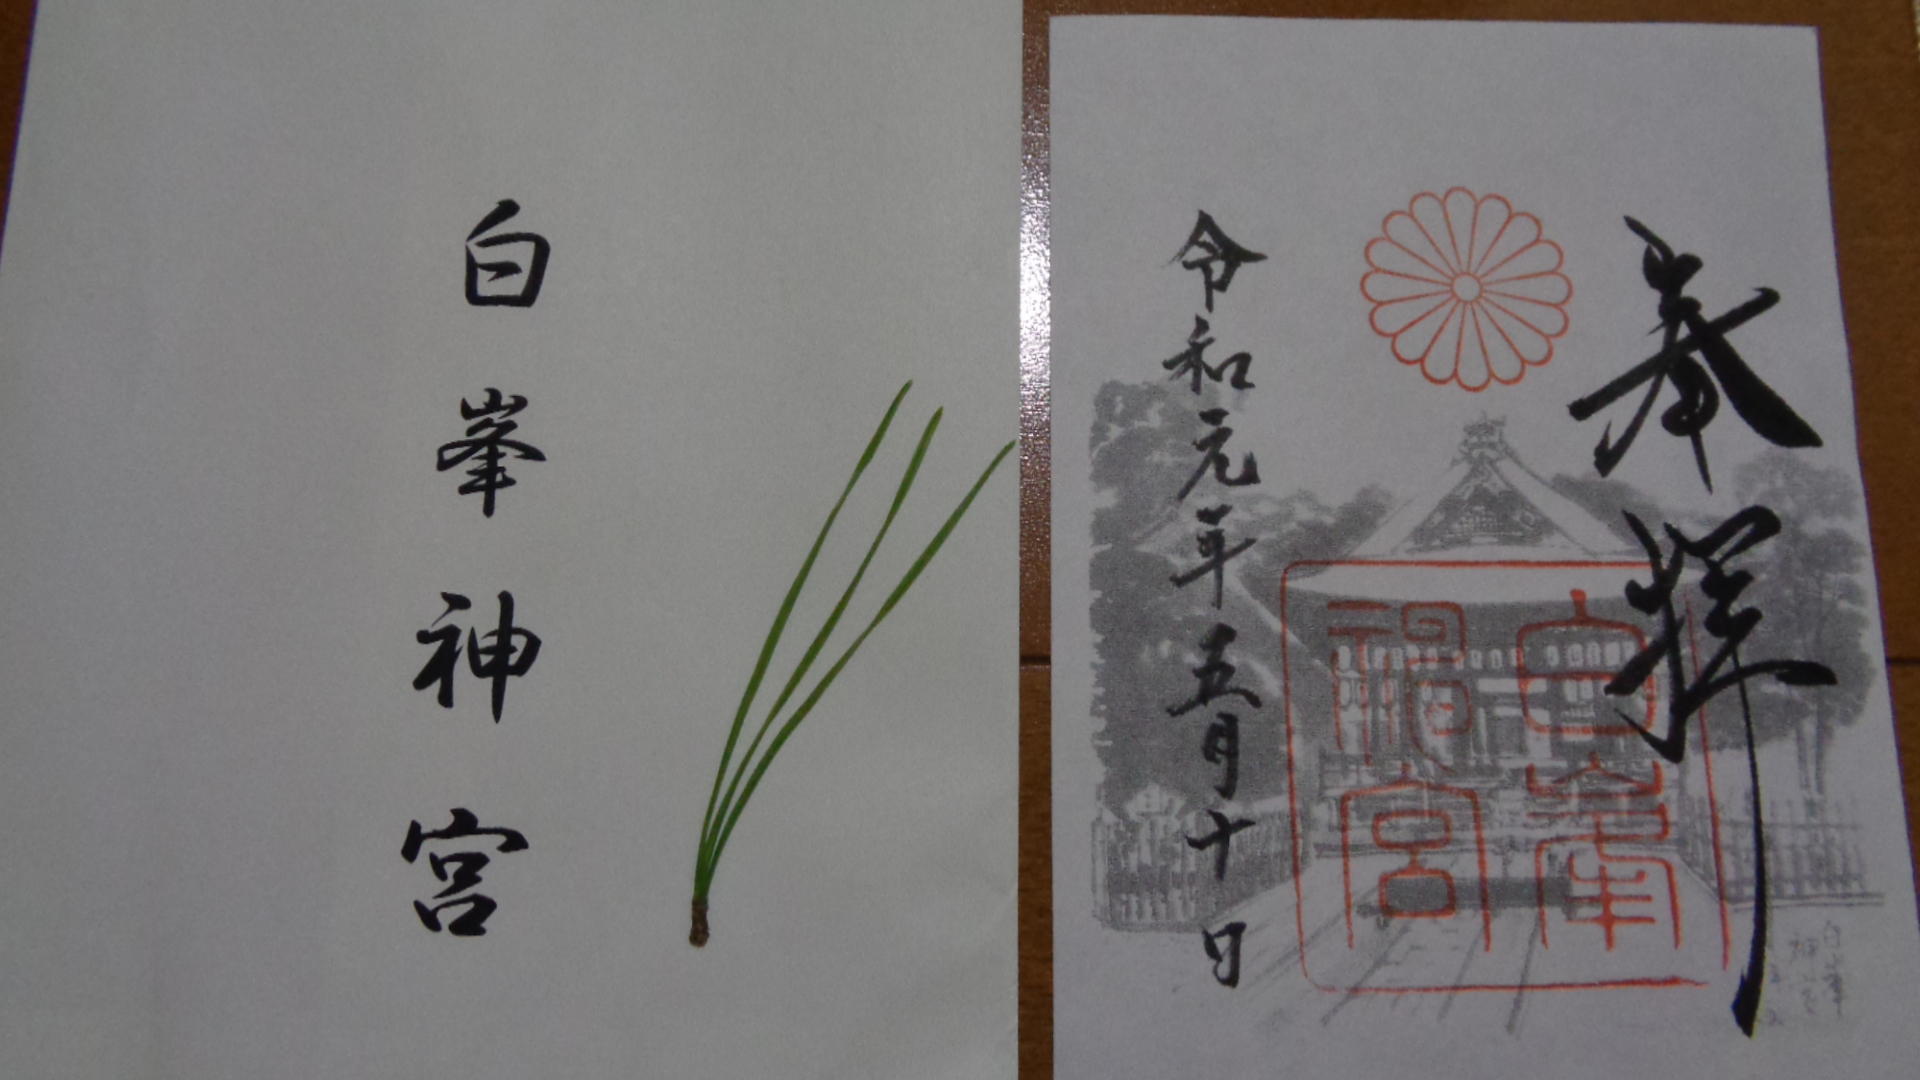 白峯神宮
奉拝
白峯
神宮
令和元年五月十日
白峯
神宮